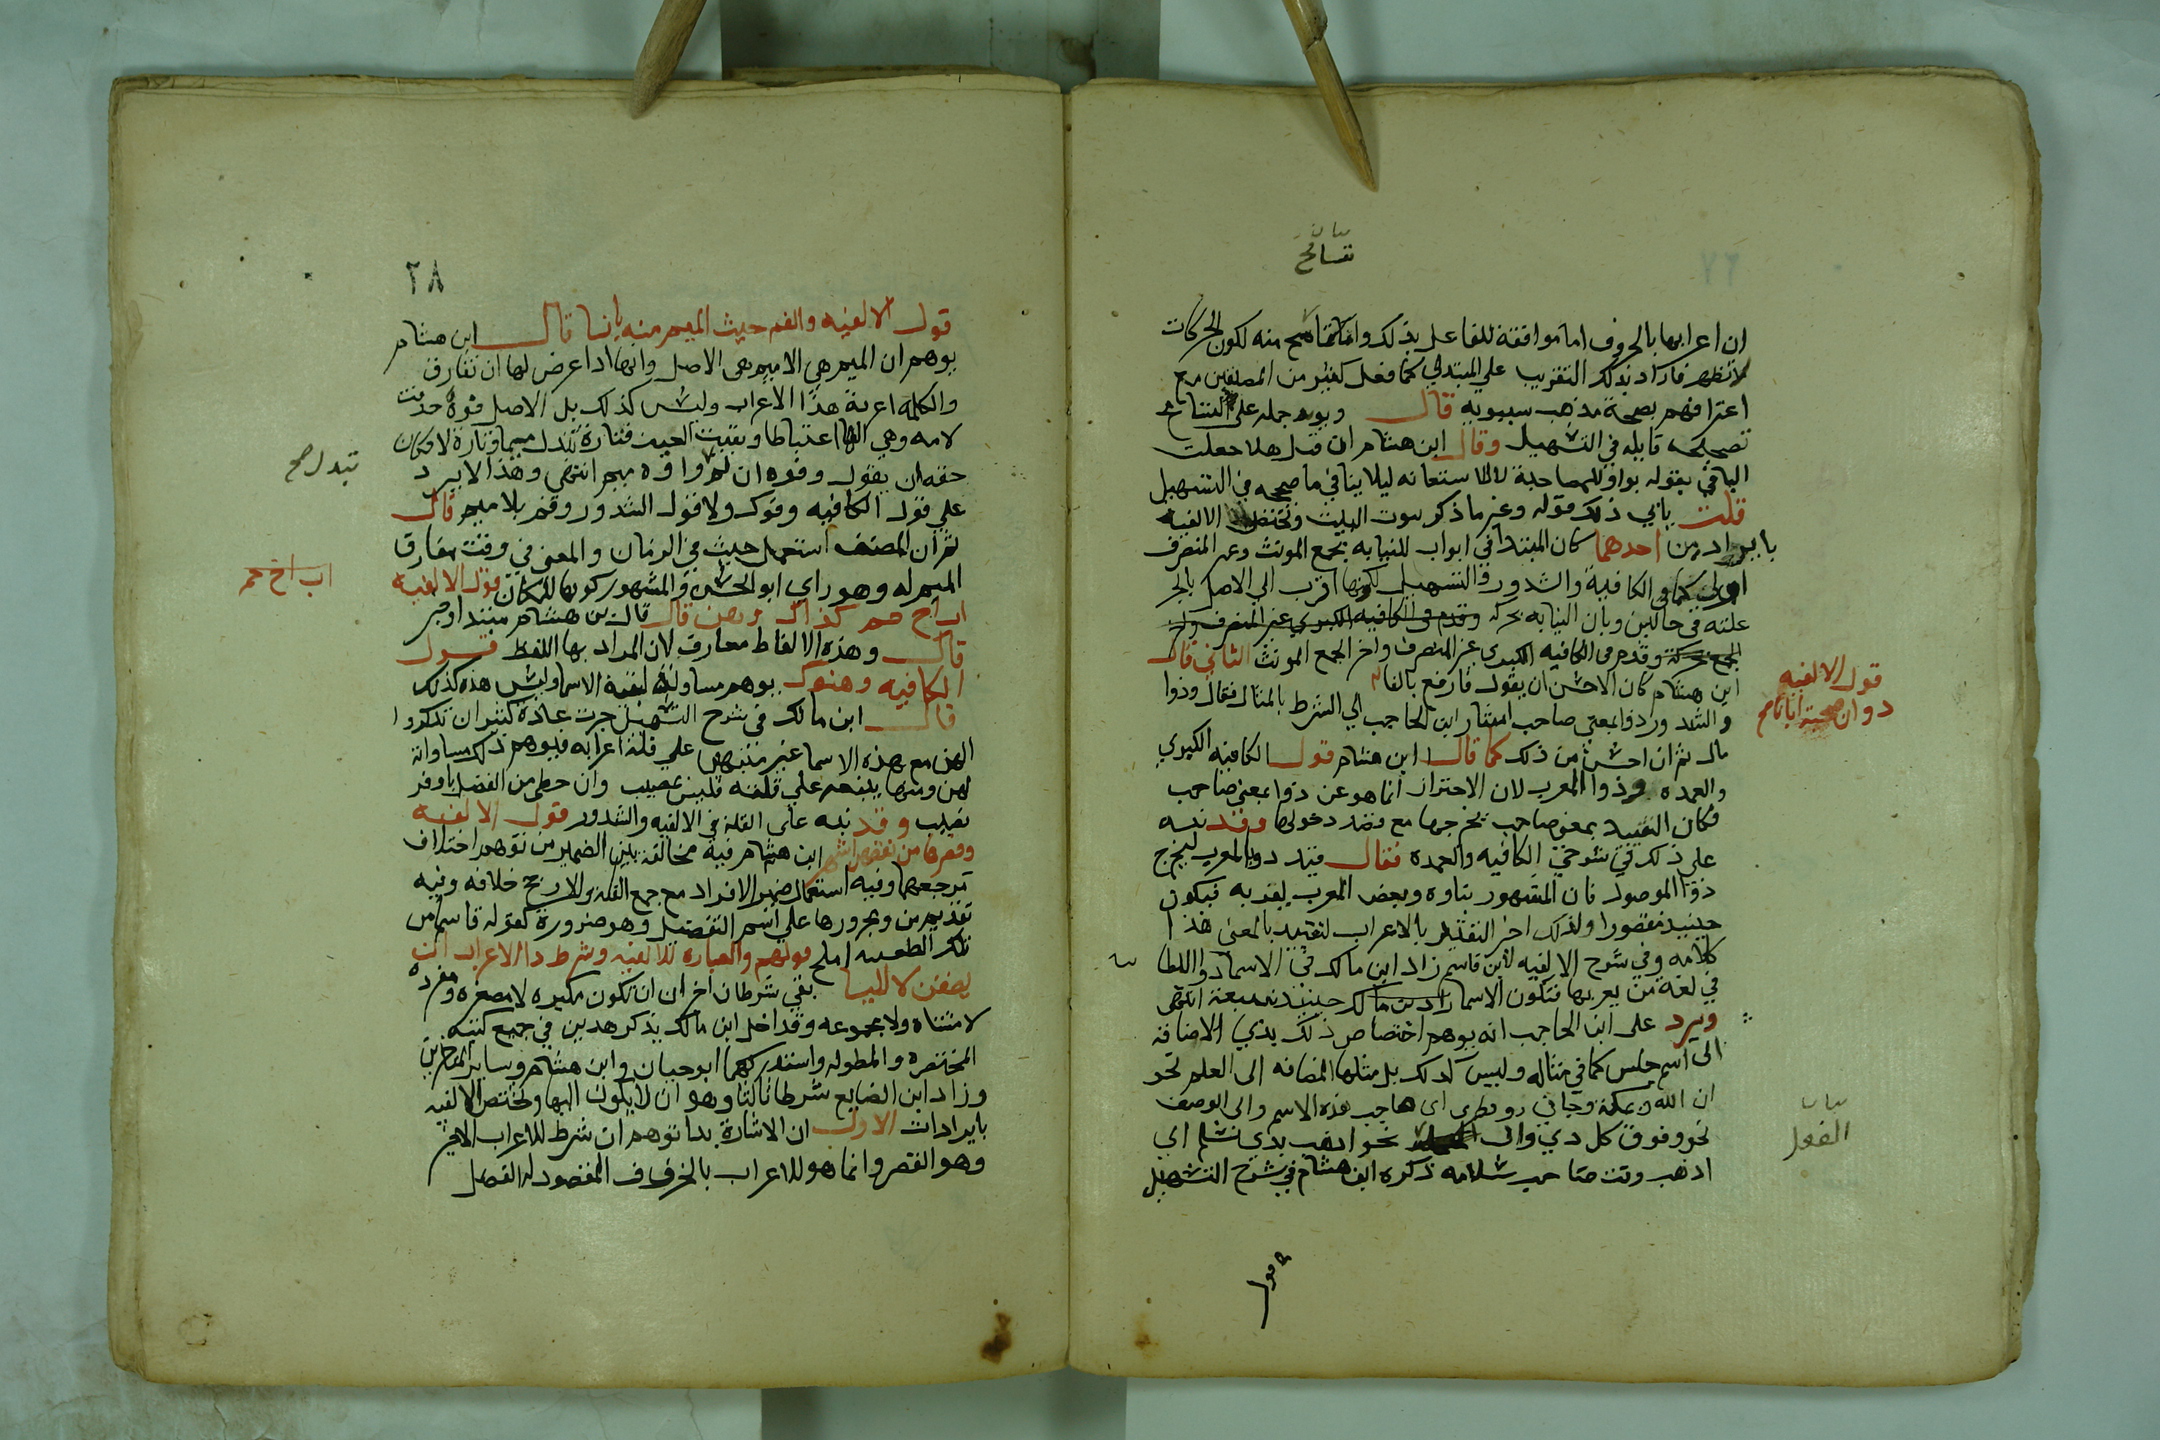 بيان
تسامح
ان اعرابها بالحروف اما موافقة للقا عل بذلك واما تسامح منه لكون الحركات
لا تظهر فاراد بذلك التقريب علي المبتدي كما فعل كثير من المصنفين مع
اعترافهم بصحة مذهب سيبويه قال ويويد حمله على التسامح
تصحيحه قايله في التسهيل وقال ابن هشام ان قيل هلا جعلت
البا في بقوله بواو للمصاحبة لا للاستعانه ليلا ينافي ما صححه في التسهيل
قلت يابي ذلك قوله وغير ما ذكر وتختص الالفيه
بايرادين احدهما كان المبتدا في ابواب النيابه بجمع الموتث وغير المنصرف
اولى كما في الكافية والشذور والتسهيل لكونها اقرب الي الاصل بالحر
علته في حالين وبان النيابه بحركه وقدم في الكافيه الكبري غير المنصرف واخر
الجمع بحركة وقدم في الكافيه الكبري غير المنصرف واخر الجمع الموتث الثاني قال
ابن هشام كان الاحسن ان يقول فارفع بالفا
والشذور اذ ذوا بمعنى صاحب اشار ابن الحاجب الي الشرط بالمثال فقال وذوا
مال ثم ان احسن من ذلك كما قال ابن هشام قول الكافيه الكبري
والعمده وذوا المعرب لان الاحتراز انما هو عن ذوا بمعنى صاحب
فكان التقييد بمعنى صاحب يخرجها مع قصد دخولها وقد نبه
على ذلك في شرحي الكافيه والعمده فقال قيد ذو بالمعرب ليخرج
ذوا الموصول فان المشهور بناوه وبعض العرب يعربه فيكون
حينيذ منقوصا ولذلك اخر التقييد بالاعراب لتقييد بالمعنى هذا
كلامه وفي شرح الالفيه لابن قاسم زاد ابن مالك في الاسما ذوا الطا
في لغة من يعربها فتكون الاسما زاد بن مالك حينيذ سبعة انتهى
ويرد على ابن الحاجب انه يوهم اختصاص ذلك بذي الاضافة
الى اسم جنس كما في مثاله وليس كذلك بل مثلها المضافه الى العلم نحو
ان الله ذو بكة وجاني ذو قطري اي صاحب هذه الاسم والى الوصف
نحو وفوق كل ذي والى نحو اذهب بذي تسلم اي
اذهب وقت صاحب سلامه ذكره ابن هشام في شرح التسهيل
قول الالفيه
ذو ان صحبة ابانا
بيان
الفعل
قول
٢٨
قول الالفيه والفم حيث الميم منه بانا قال ابن هشام
يوهم ان الميم هي الاصل وانها اذا عرض لها ان تفارق
والكلمة اعربة هذا الاعراب وليس كذلك بل الاصل فوه حذفت
لامه وهي الها اعتباطا وبقيت العين فتارة تبدل ميما وتارة لا فكان
حقه ان يقول وفوه ان لم واوه بميم انتهى وهذا لا يرد
علي قول الكافيه وفوك ولا قول الشذور وفم بلا ميم قال
ثم ان المصنف استعمل حيث في الزمان والمعنى في وقت مفارق
الميم له وهو راي ابو الحسن والمشهور كونها للمكان قول الالفيه
اب اخ حم كذاك وهن قال قال بن هشام مبتدا وخبر
قال وهذه الالفاظ معارف لان المراد بها اللفظ قول
الكافيه وهنوك يوهم مساواته لبقية الاسما وليس هذه كذلك
قال ابن مالك في شرح التسهيل جرت عادة كثير ان يذكروا
الهن مع هذه الاسما غير منبهين علي قلة اعرابه فيوهم ذلك مساواته
لهن ومن لم ينبه علي قلته فليس بمصيب وان حظي من الفضل باوفر
نصيب وقد نبه على القلة في الالفيه والشذور قول الالفيه
وقصرها من نقصهن اشهر ابن هشام فيه مخالفة بين الضميرين توهم اختلاف
مرجعهما وفيه استعمال ضمير الافراد مع جمع القلة والارجح خلافه وفيه
تقديم من ومجرورها علي اسم التفضيل وهو ضرورة كقوله فاسما من
تلك الظعينه املح قولهم والعباره للالفيه وشرط ذا الاعراب ان
يضفن لا لليا بقي شرطان اخران ان تكون مكبره لا مصغره ومفرده
لا مثناه ولا مجموعه وقد اخل ابن مالك بذكر هذين في جميع كتبه
المختصره والمطوله واستدركهما ابو حيان وابن هشام وساير المتاخرين
وزاد ابن الضايع شرطا ثالثا وهو ان لا يكون الها وتختص الالفيه
بايرادات الاول ان الاشارة بذا توهم ان شرط للاعراب الاخير
وهو القصر وانما هو للاعراب بالحرف المقصود له الفصل
تبدل صح
اب اخ حم